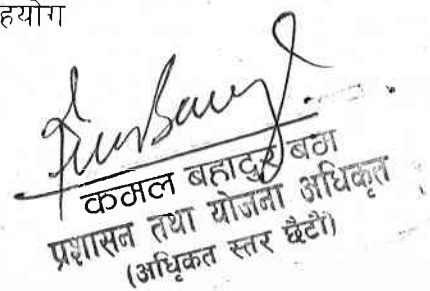 हयोग
कमल बहादुर बम
प्रशासन तथा योजना अधिकृत
(अधिकृत स्तर छैटौं)